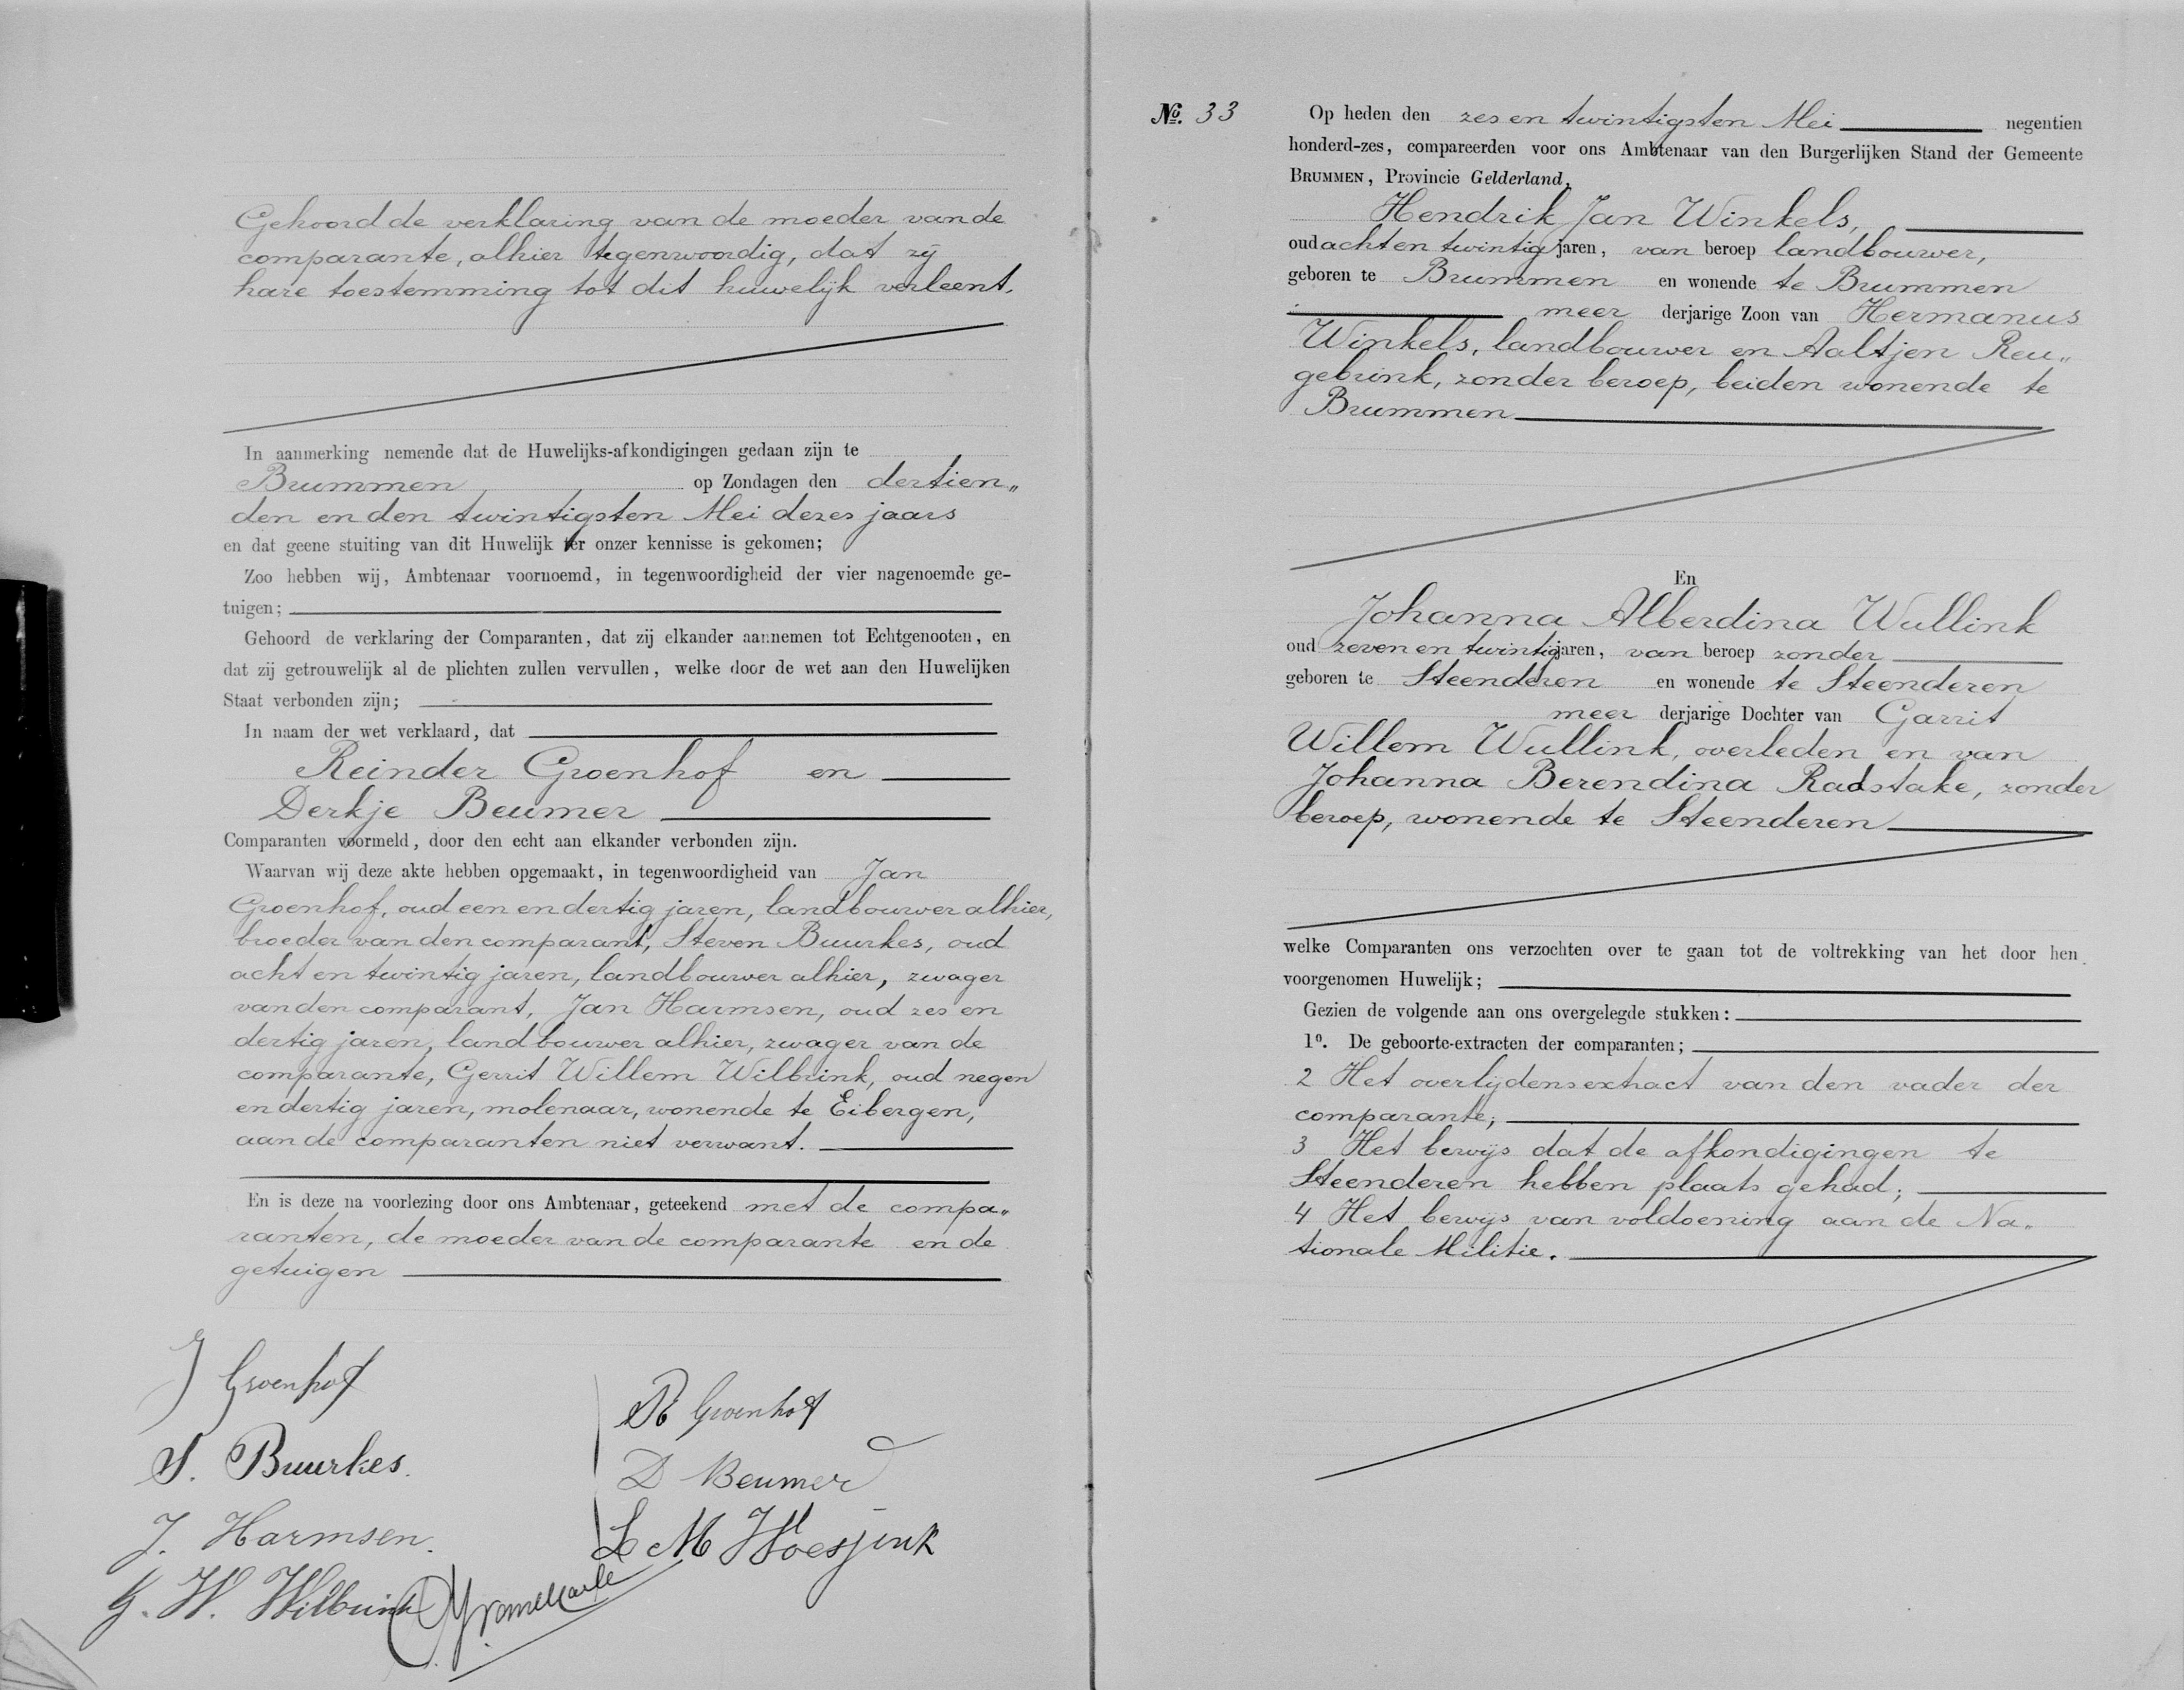 Gehoord de verklaring van de moeder van de
comparante, alhier tegenwoordig, dat zij
hare toestemming tot dit huwelijk verleent.
In aanmerking nemende dat de Huwelijks-afkondigingen gedaan zijn te
Brummen op Zondagen den dertien„
den en den twintigsten Mei dezes jaars
en dat geene stuiting van dit Huwelijk ter onzer kennisse is gekomen;
Zoo hebben wij, Ambtenaar voornoemd, in tegenwoordigheid der vier nagenoemde ge-
tuigen;
Gehoord de verklaring der Comparanten, dat zij elkander aannemen tot Echtgenooten, en
dat zij getrouwelijk al de plichten zullen vervullen, welke door de wet aan den Huwelijken
Staat verbonden zijn;
In naam der wet verklaard, dat
Reinder Groenhof en
Derkje Beumer
Comparanten voormeld, door den echt aan elkander verbonden zijn.
Waarvan wij deze akte hebben opgemaakt, in tegenwoordigheid van Jan
Groenhof, oud een en dertig jaren, landbouwer alhier,
broeder van den comparant, Steven Buurkes, oud
acht en twintig jaren, landbouwer alhier, zwager
van den comparant, Jan Harmsen, oud zes en
dertig jaren, landbouwer alhier, zwager van de
comparante, Gerrit Willem Wilbrink, oud negen
en dertig jaren, molenaar, wonende te Eibergen,
aan de comparanten niet verwant.
En is deze na voorlezing door ons Ambtenaar, geteekend met de compa„
ranten, de moeder van de comparante en de
getuigen
J Groenhof
R Groenhof
S. Buurkes.
D Beumer
J. Harmsen.
L M Woesjenk
G. W. Wilbrink
No. 33
Op heden den zes en twintigsten Mei negentien
honderd-zes, compareerden voor ons Ambtenaar van den Burgerlijken Stand der Gemeente
BRUMMEN, Provincie Gelderland,
Hendrik Jan Winkels,
oud acht en twintig jaren, van beroep landbouwer,
geboren te Brummen en wonende te Brummen
meer derjarige Zoon van Hermanus
Winkels, landbouwer en Aaltjen Reu„
gebrink, zonder beroep, beiden wonende te
Brummen
En
Johanna Alberdina Wullink
oud zeven en twintig jaren, van beroep zonder
geboren te Steenderen en wonende te Steenderen
meer derjarige Dochter van Garrit
Willem Wullink, overleden en van
Johanna Berendina Radstake, zonder
beroep, wonende te Steenderen
welke Comparanten ons verzochten over te gaan tot de voltrekking van het door hen
voorgenomen Huwelijk;
Gezien de volgende aan ons overgelegde stukken:
1º. De geboorte-extracten der comparanten;
2 Het overlijdensextract van den vader der
comparante;
3 Het bewijs dat de afkondigingen te
Steenderen hebben plaats gehad;
4 Het bewijs van voldoening aan de Na„
tionale Militie.